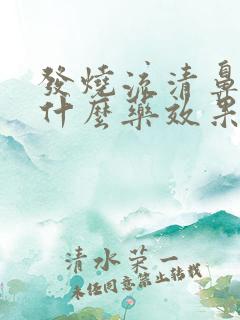 發燒流清鼻
什麼藥效果
清水荣一
未经同意禁止转载